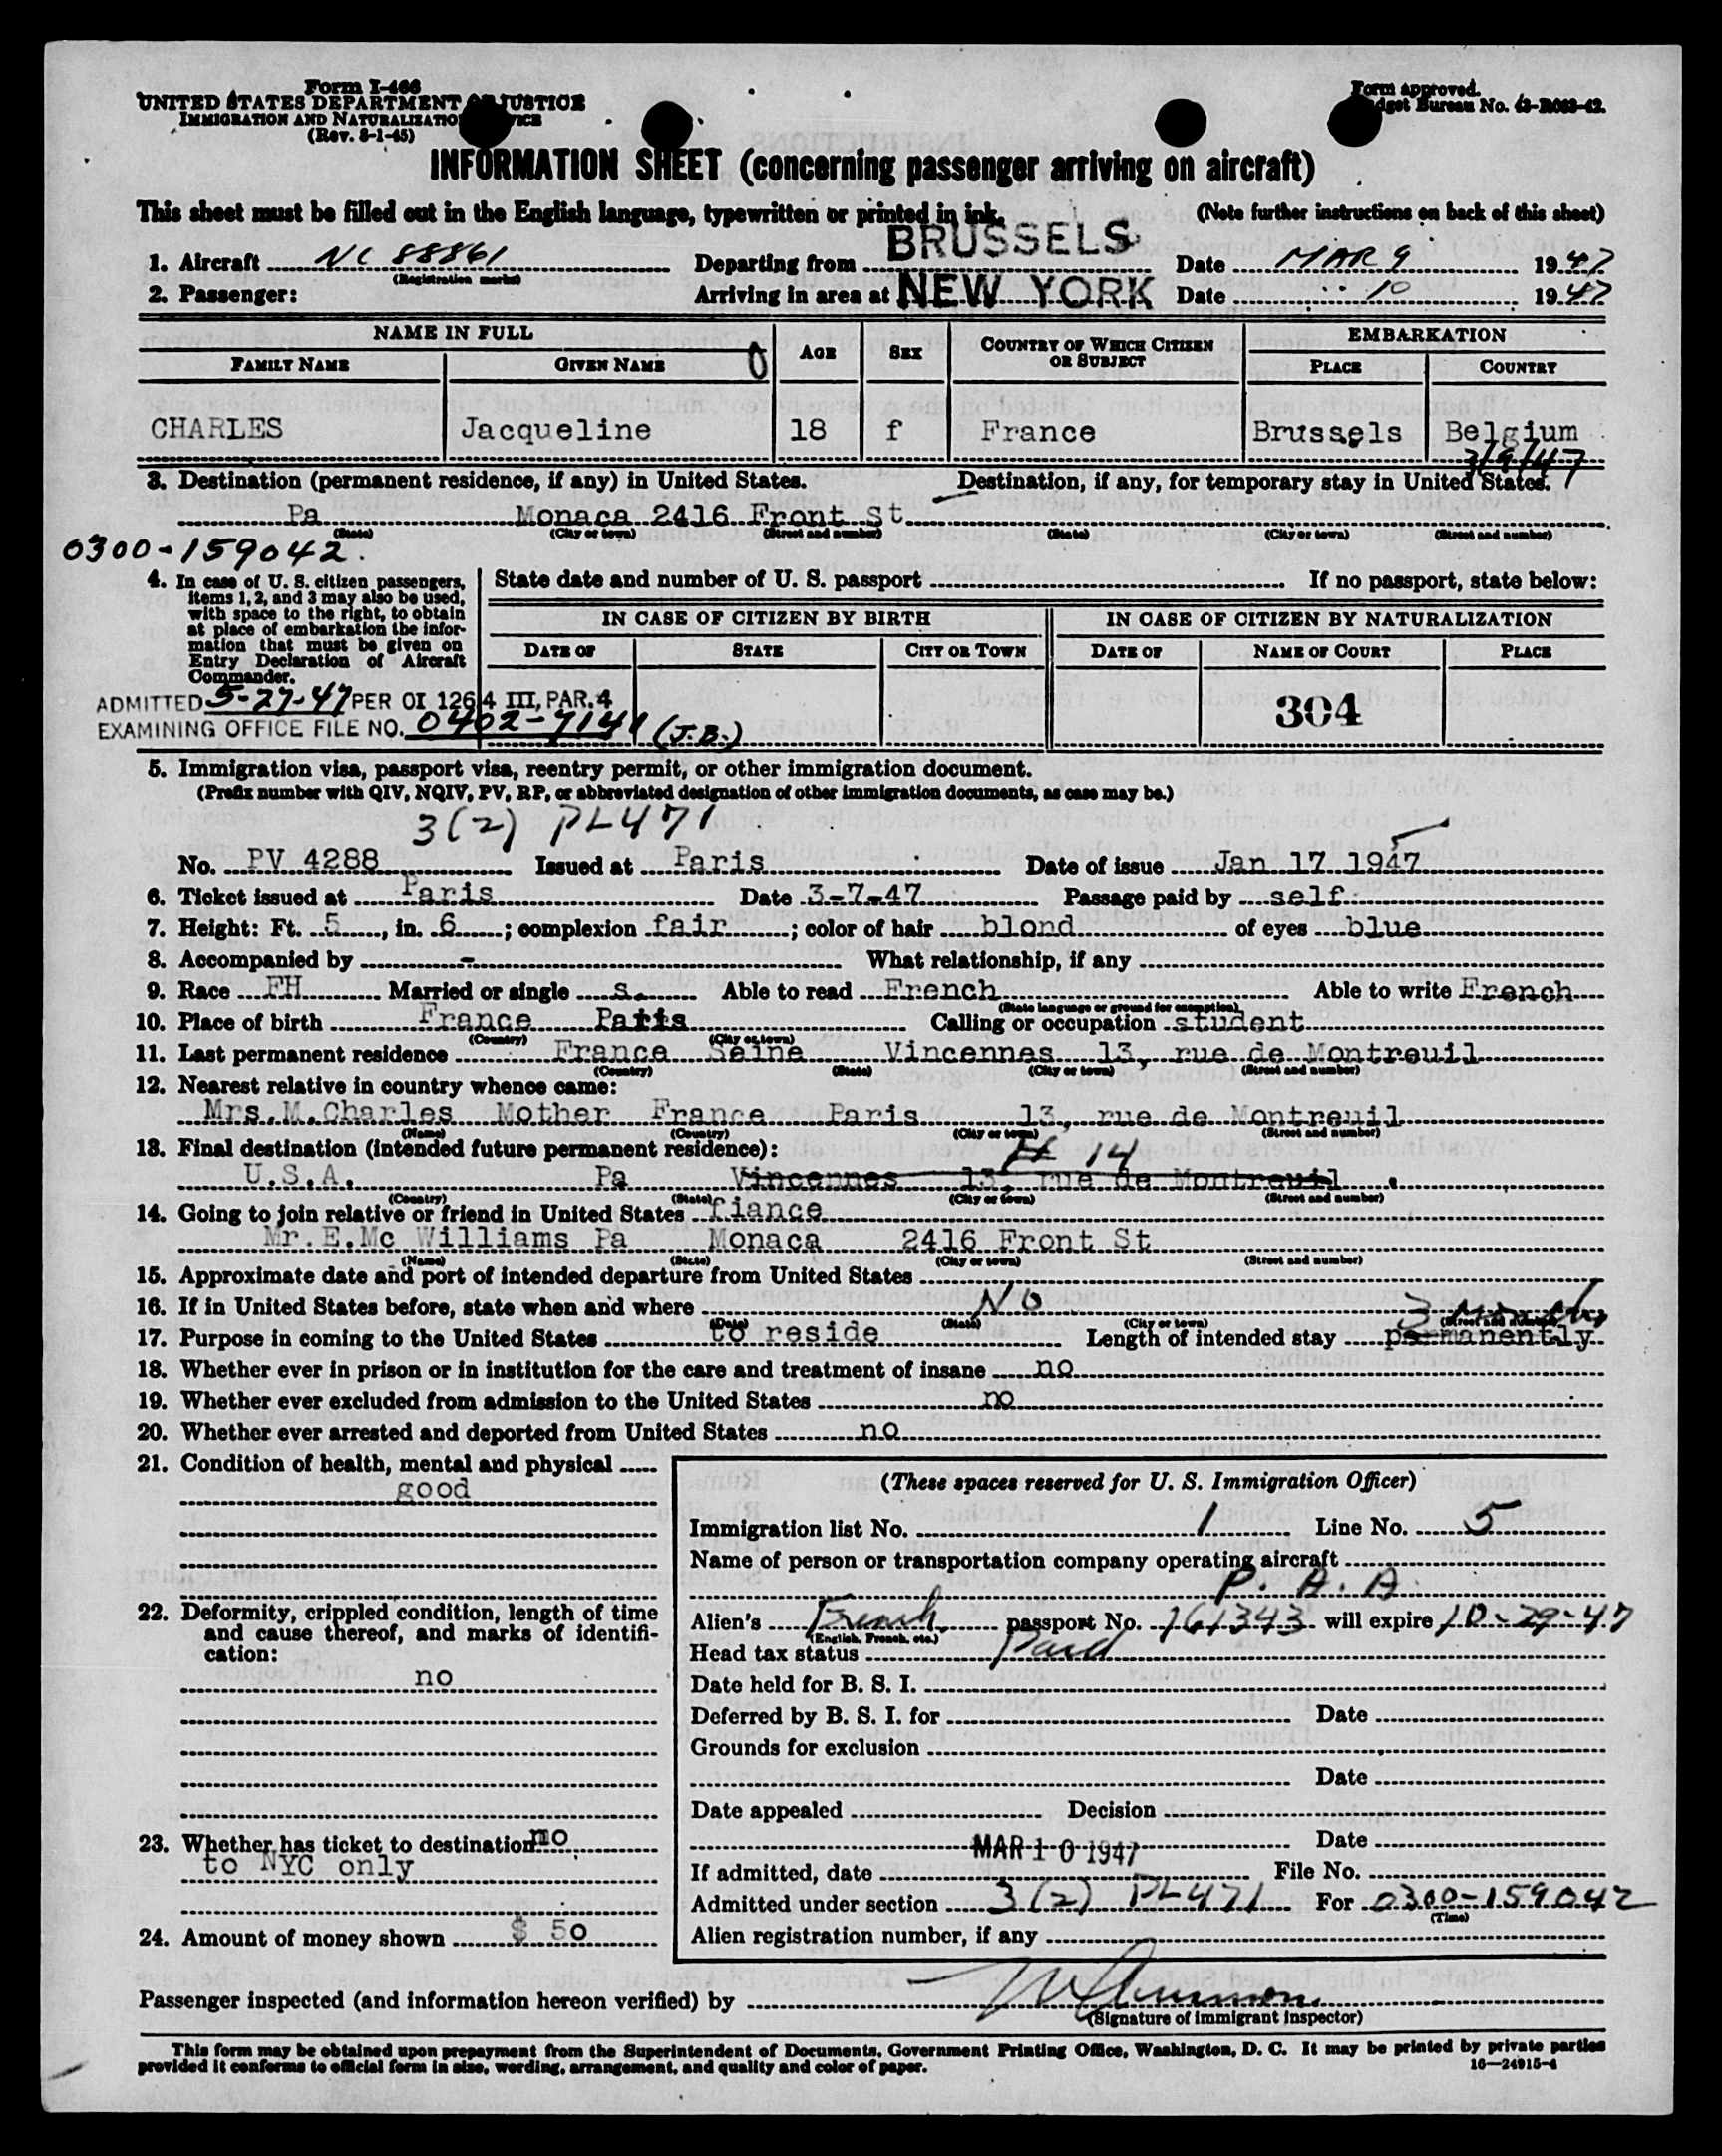 Form I-466
UNITED STATES DEPARTMENT OF JUSTICE
IMMIGRATION AND NATURALIZATION SERVICE
(Rev. 8-1-45)
Form approved.
Budget Bureau No. 43-R083-42.
INFORMATION SHEET (concerning passenger arriving on aircraft)
This sheet must be filled out in the English language, typewritten or printed in ink. (Note further instructions on back of this sheet)
1. Aircraft NC 88861 Departing from BRUSSELS Date MAR 9 1947
(Registration marks)
2. Passenger: Arriving in area at NEW YORK Date " 10 1947
NAME IN FULL AGE SEX COUNTRY OF WHICH CITIZEN OR SUBJECT EMBARKATION
FAMILY NAME GIVEN NAME PLACE COUNTRY
CHARLES Jacqueline 18 f France Brussels Belgium
3/9/47
3. Destination (permanent residence, if any) in United States. Destination, if any, for temporary stay in United States.
Pa Monaca 2416 Front St
(State) (City or town) (Street and number) (State) (City or town) (Street and number)
0300-159042
4. In case of U. S. citizen passengers, items 1, 2, and 3 may also be used, with space to the right, to obtain at place of embarkation the information that must be given on Entry Declaration of Aircraft Commander.
State date and number of U. S. passport If no passport, state below:
IN CASE OF CITIZEN BY BIRTH IN CASE OF CITIZEN BY NATURALIZATION
DATE OF STATE CITY OR TOWN DATE OF NAME OF COURT PLACE
304
ADMITTED 5-27-47 PER OI 126.4 III, PAR. 4
EXAMINING OFFICE FILE NO. 0402-7141 (J.B.)
5. Immigration visa, passport visa, reentry permit, or other immigration document.
(Prefix number with QIV, NQIV, PV, RP, or abbreviated designation of other immigration documents, as case may be.)
3(2) PL471
No. PV 4288 Issued at Paris Date of issue Jan 17 1947
6. Ticket issued at Paris Date 3-7-47 Passage paid by self
7. Height: Ft. 5, in. 6; complexion fair; color of hair blond of eyes blue
8. Accompanied by - What relationship, if any
9. Race FH Married or single s. Able to read French Able to write French
(State language or ground for exemption)
10. Place of birth France Paris Calling or occupation student
(Country) (City or town)
11. Last permanent residence France Seine Vincennes 13, rue de Montreuil
(Country) (State) (City or town) (Street and number)
12. Nearest relative in country whence came:
Mrs.M.Charles Mother France Paris 13, rue de Montreuil
(Name) (Country) (City or town) (Street and number)
13. Final destination (intended future permanent residence): 14
U.S.A. Pa Vincennes 13, rue de Montreuil
(Country) (State) (City or town) (Street and number)
14. Going to join relative or friend in United States fiance
Mr.E.Mc Williams Pa Monaca 2416 Front St
(Name) (State) (City or town) (Street and number)
15. Approximate date and port of intended departure from United States
16. If in United States before, state when and where No
(Date) (State) (City or town) (Street and number)
17. Purpose in coming to the United States to reside Length of intended stay permanently 3
18. Whether ever in prison or in institution for the care and treatment of insane no
19. Whether ever excluded from admission to the United States no
20. Whether ever arrested and deported from United States no
21. Condition of health, mental and physical
good
22. Deformity, crippled condition, length of time and cause thereof, and marks of identification:
no
23. Whether has ticket to destination no
to NYC only
24. Amount of money shown $ 50
(These spaces reserved for U. S. Immigration Officer)
Immigration list No. 1 Line No. 5
Name of person or transportation company operating aircraft
P. A. A.
Alien's French passport No. 161343 will expire 10-29-47
(English, French, etc.)
Head tax status Paid
Date held for B. S. I.
Deferred by B. S. I. for Date
Grounds for exclusion
Date
Date appealed Decision
Date
If admitted, date MAR 10 1947 File No.
Admitted under section 3(2) PL471 For 0300-159042
(Time)
Alien registration number, if any
Passenger inspected (and information hereon verified) by
(Signature of immigrant inspector)
This form may be obtained upon prepayment from the Superintendent of Documents, Government Printing Office, Washington, D. C. It may be printed by private parties
provided it conforms to official form in size, wording, arrangement, and quality and color of paper. 16—24915-4